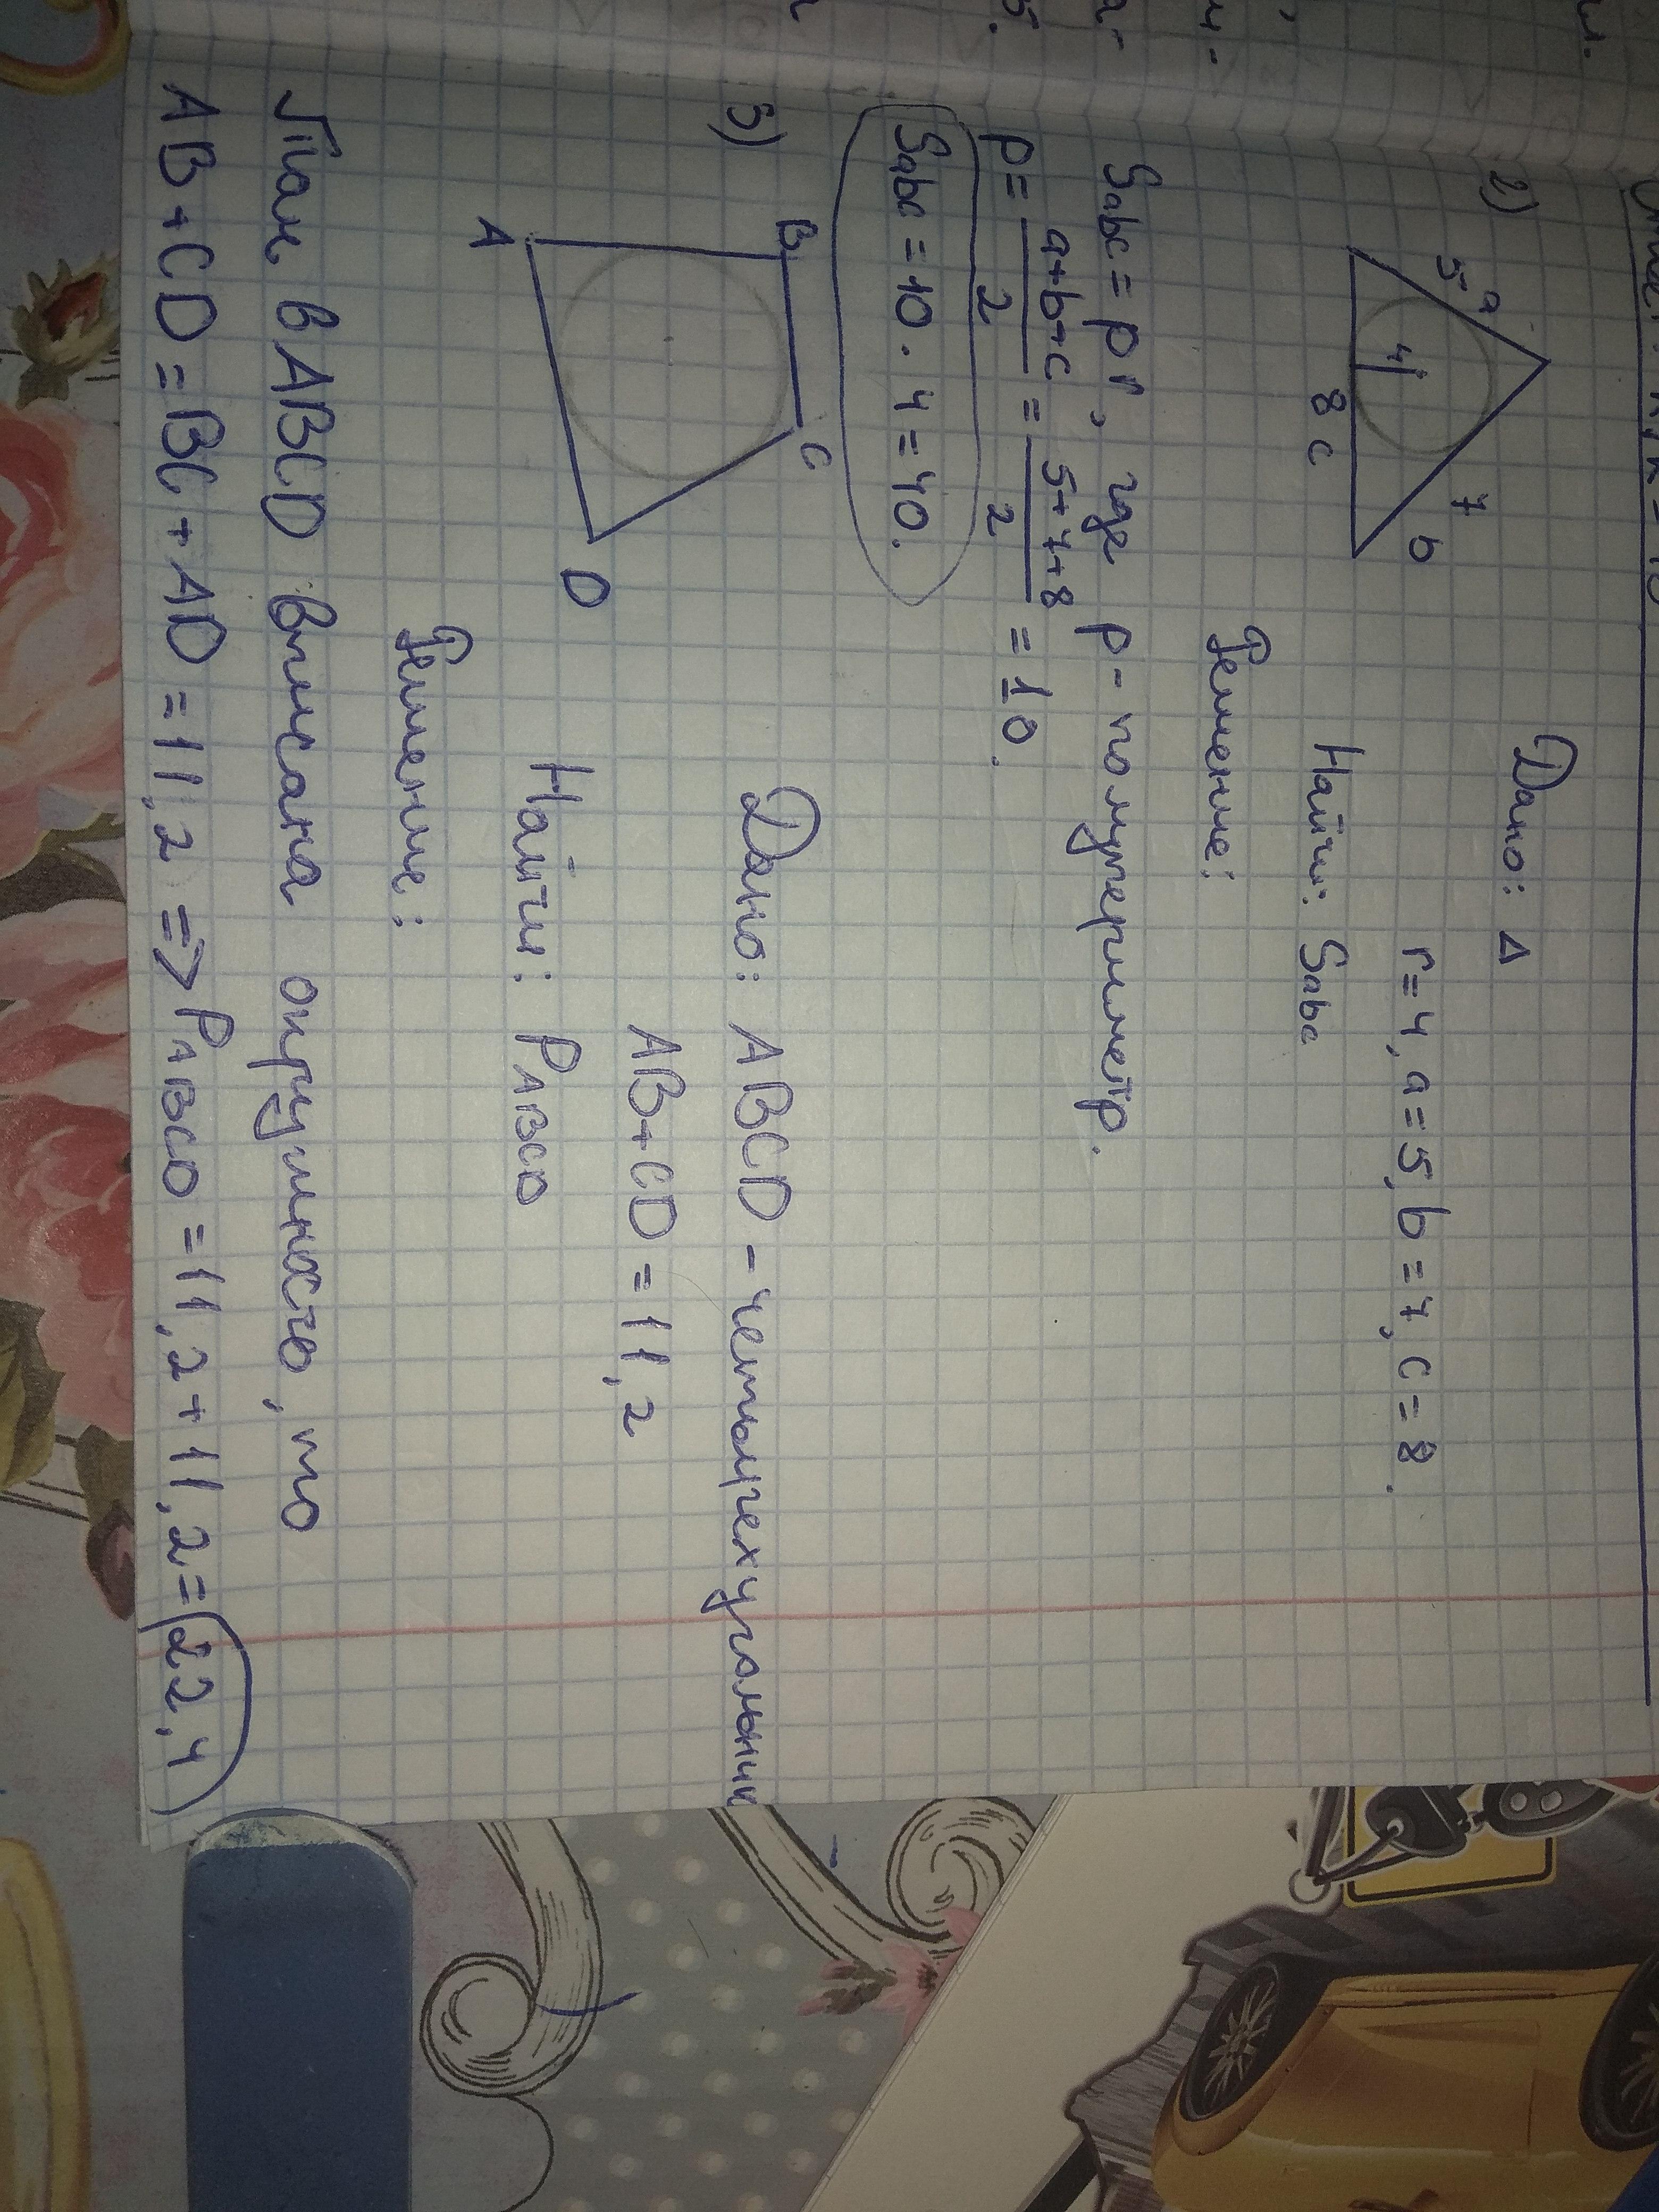 2)
5 a
4
7
b
8 c
Дано: Δ
r=4, a=5, b=7, c=8.
Найти: Sabc
Решение:
Sabc = pr, где p - полупериметр.
p = a+b+c / 2 = 5+7+8 / 2 = 10.
Sabc = 10 · 4 = 40.
3)
B
C
A
D
Дано: ABCD - четырехугольник
AB+CD = 11,2
Найти: PABCD
Решение:
Так, в ABCD вписана окружность, то
AB+CD = BC+AD = 11,2 => PABCD = 11,2+11,2 = 22,4